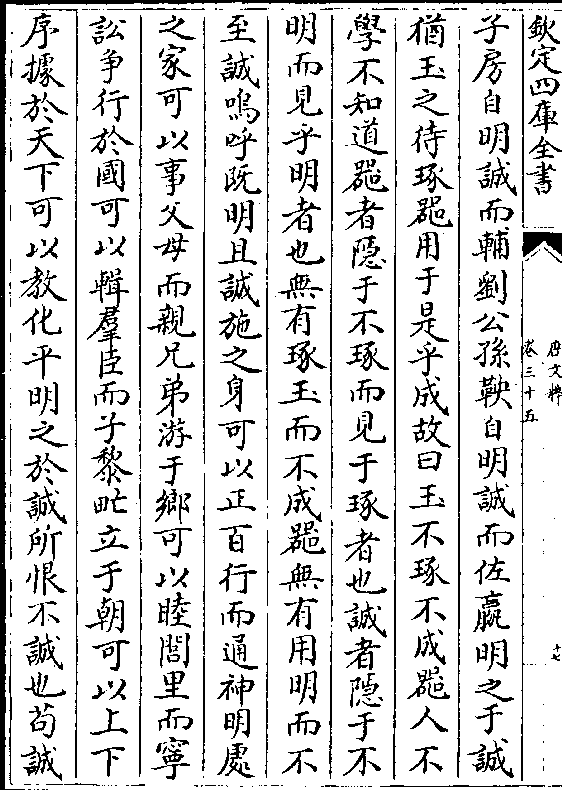 欽定四庫全書
唐文粹
卷三十五
十七
子房自明誠而輔劉公孫鞅自明誠而佐嬴明之于誠
猶玉之待琢器用于是乎成故曰玉不琢不成器人不
學不知道器者隠于不琢而見于琢者也誠者隠于不
明而見乎明者也無有琢玉而不成器無有用明而不
至誠嗚呼既明且誠施之身可以正百行而通神明處
之家可以事父母而親兄弟游于鄉可以睦閭里而寧
訟争行於國可以輯羣臣而子黎甿立于朝可以上下
序據於天下可以教化平明之於誠所恨不誠也苟誠